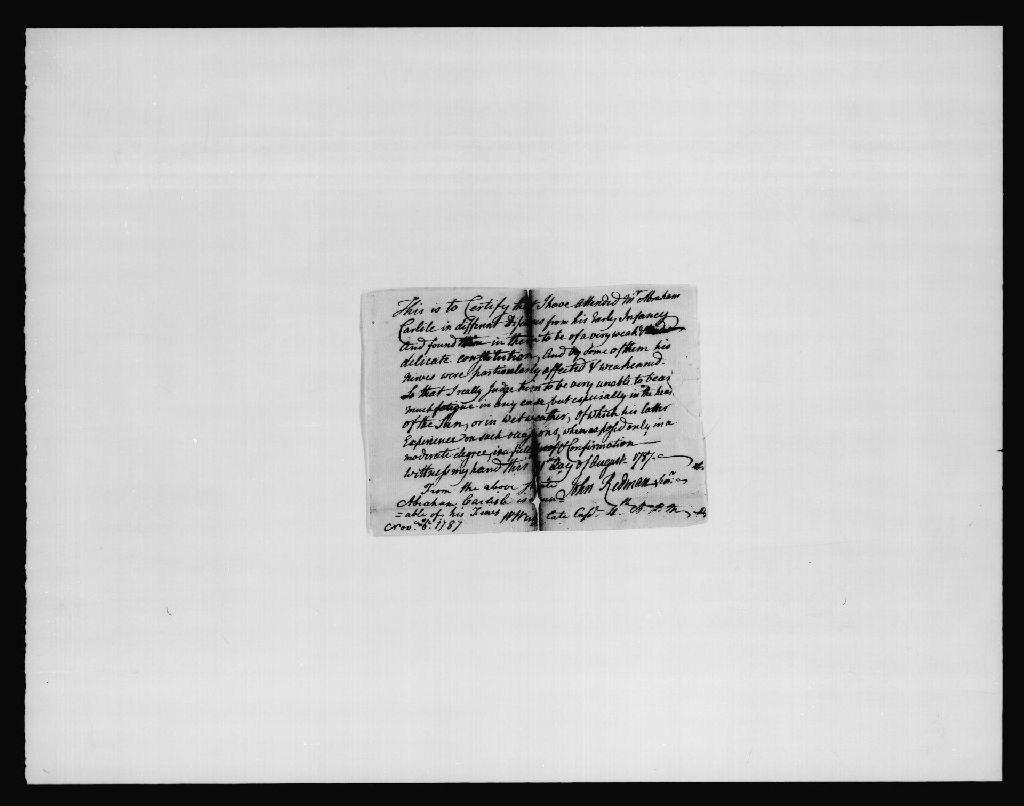 This is to Certify that I have attended Mr Abraham
Carlile in different Diseases from his Early Infancy
And found in them to be of a very weak &
delicate constitution, And by some of them his
nerves were particularly affected & weakened.
So that I really Judge them to be very unable to bear
much fatigue in any case, but especially in the heat
of the Sun, or in Wet weather, Of which his latter
Experience on such occasions, when exposed only in a
moderate degree, is a full proof & Confirmation
Witness my hand this Day of August 1787.
John Redman Senr
From the above State
Abraham Carlisle is
=able of his Fines
Novr. 8th. 1787 late Capt. 4th